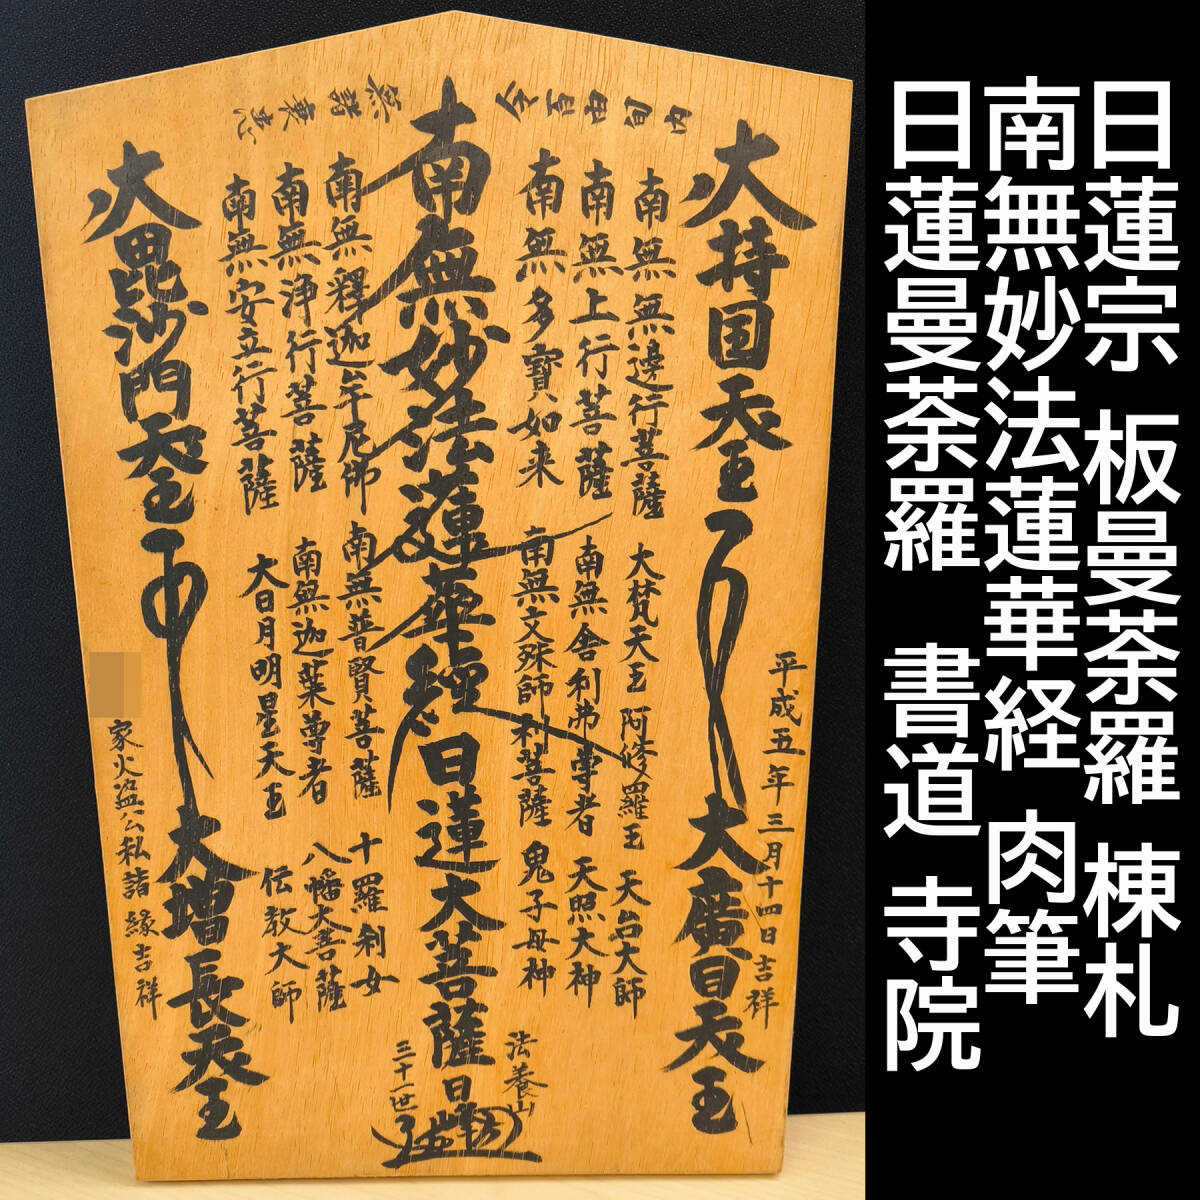 日蓮宗 板曼荼羅 棟札
南無妙法蓮華経 肉筆
日蓮曼荼羅 書道 寺院
大持国天王
大廣目天王
平成五年三月十四日吉祥
南無無邊行菩薩
南無上行菩薩
南無多寶如来
大梵天王
阿修羅王
南無舎利弗尊者
南無文殊師利菩薩
天台大師
天照大神
鬼子母神
南無妙法蓮華経
日蓮大菩薩
法養山
三十一世
南無釋迦牟尼佛
南無浄行菩薩
南無安立行菩薩
南無普賢菩薩
南無迦葉尊者
大日月明星天王
十羅刹女
八幡大菩薩
伝教大師
大毘沙門天王
大増長天王
家火盗公私諸縁吉祥